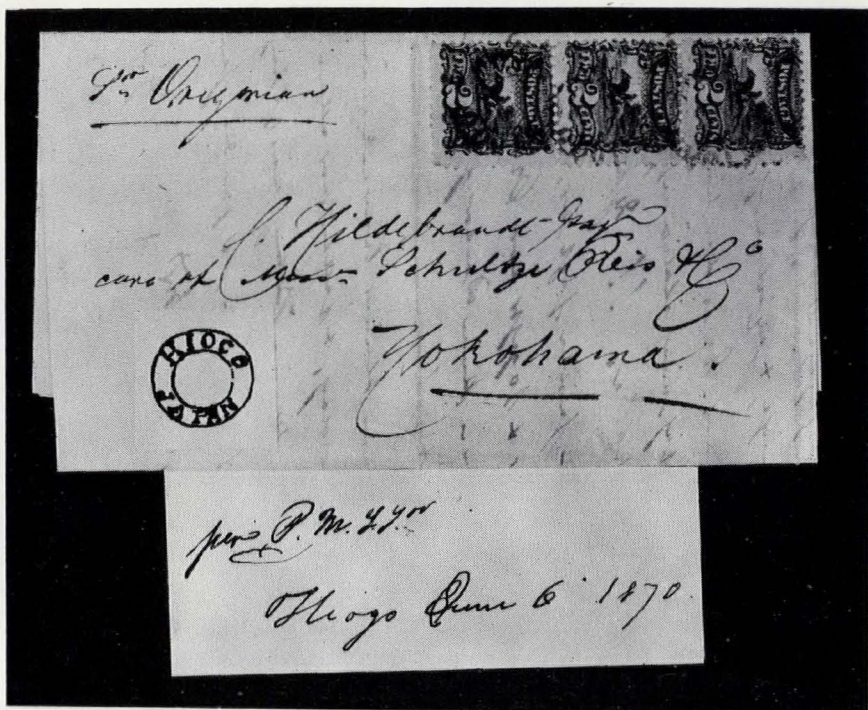 Str Oregonian
C. Hildebrandt
care of Messrs Schultze Reis & Co
Yokohama.
HIOGO
JAPAN
per P. M.
Hiogo June 6 1870